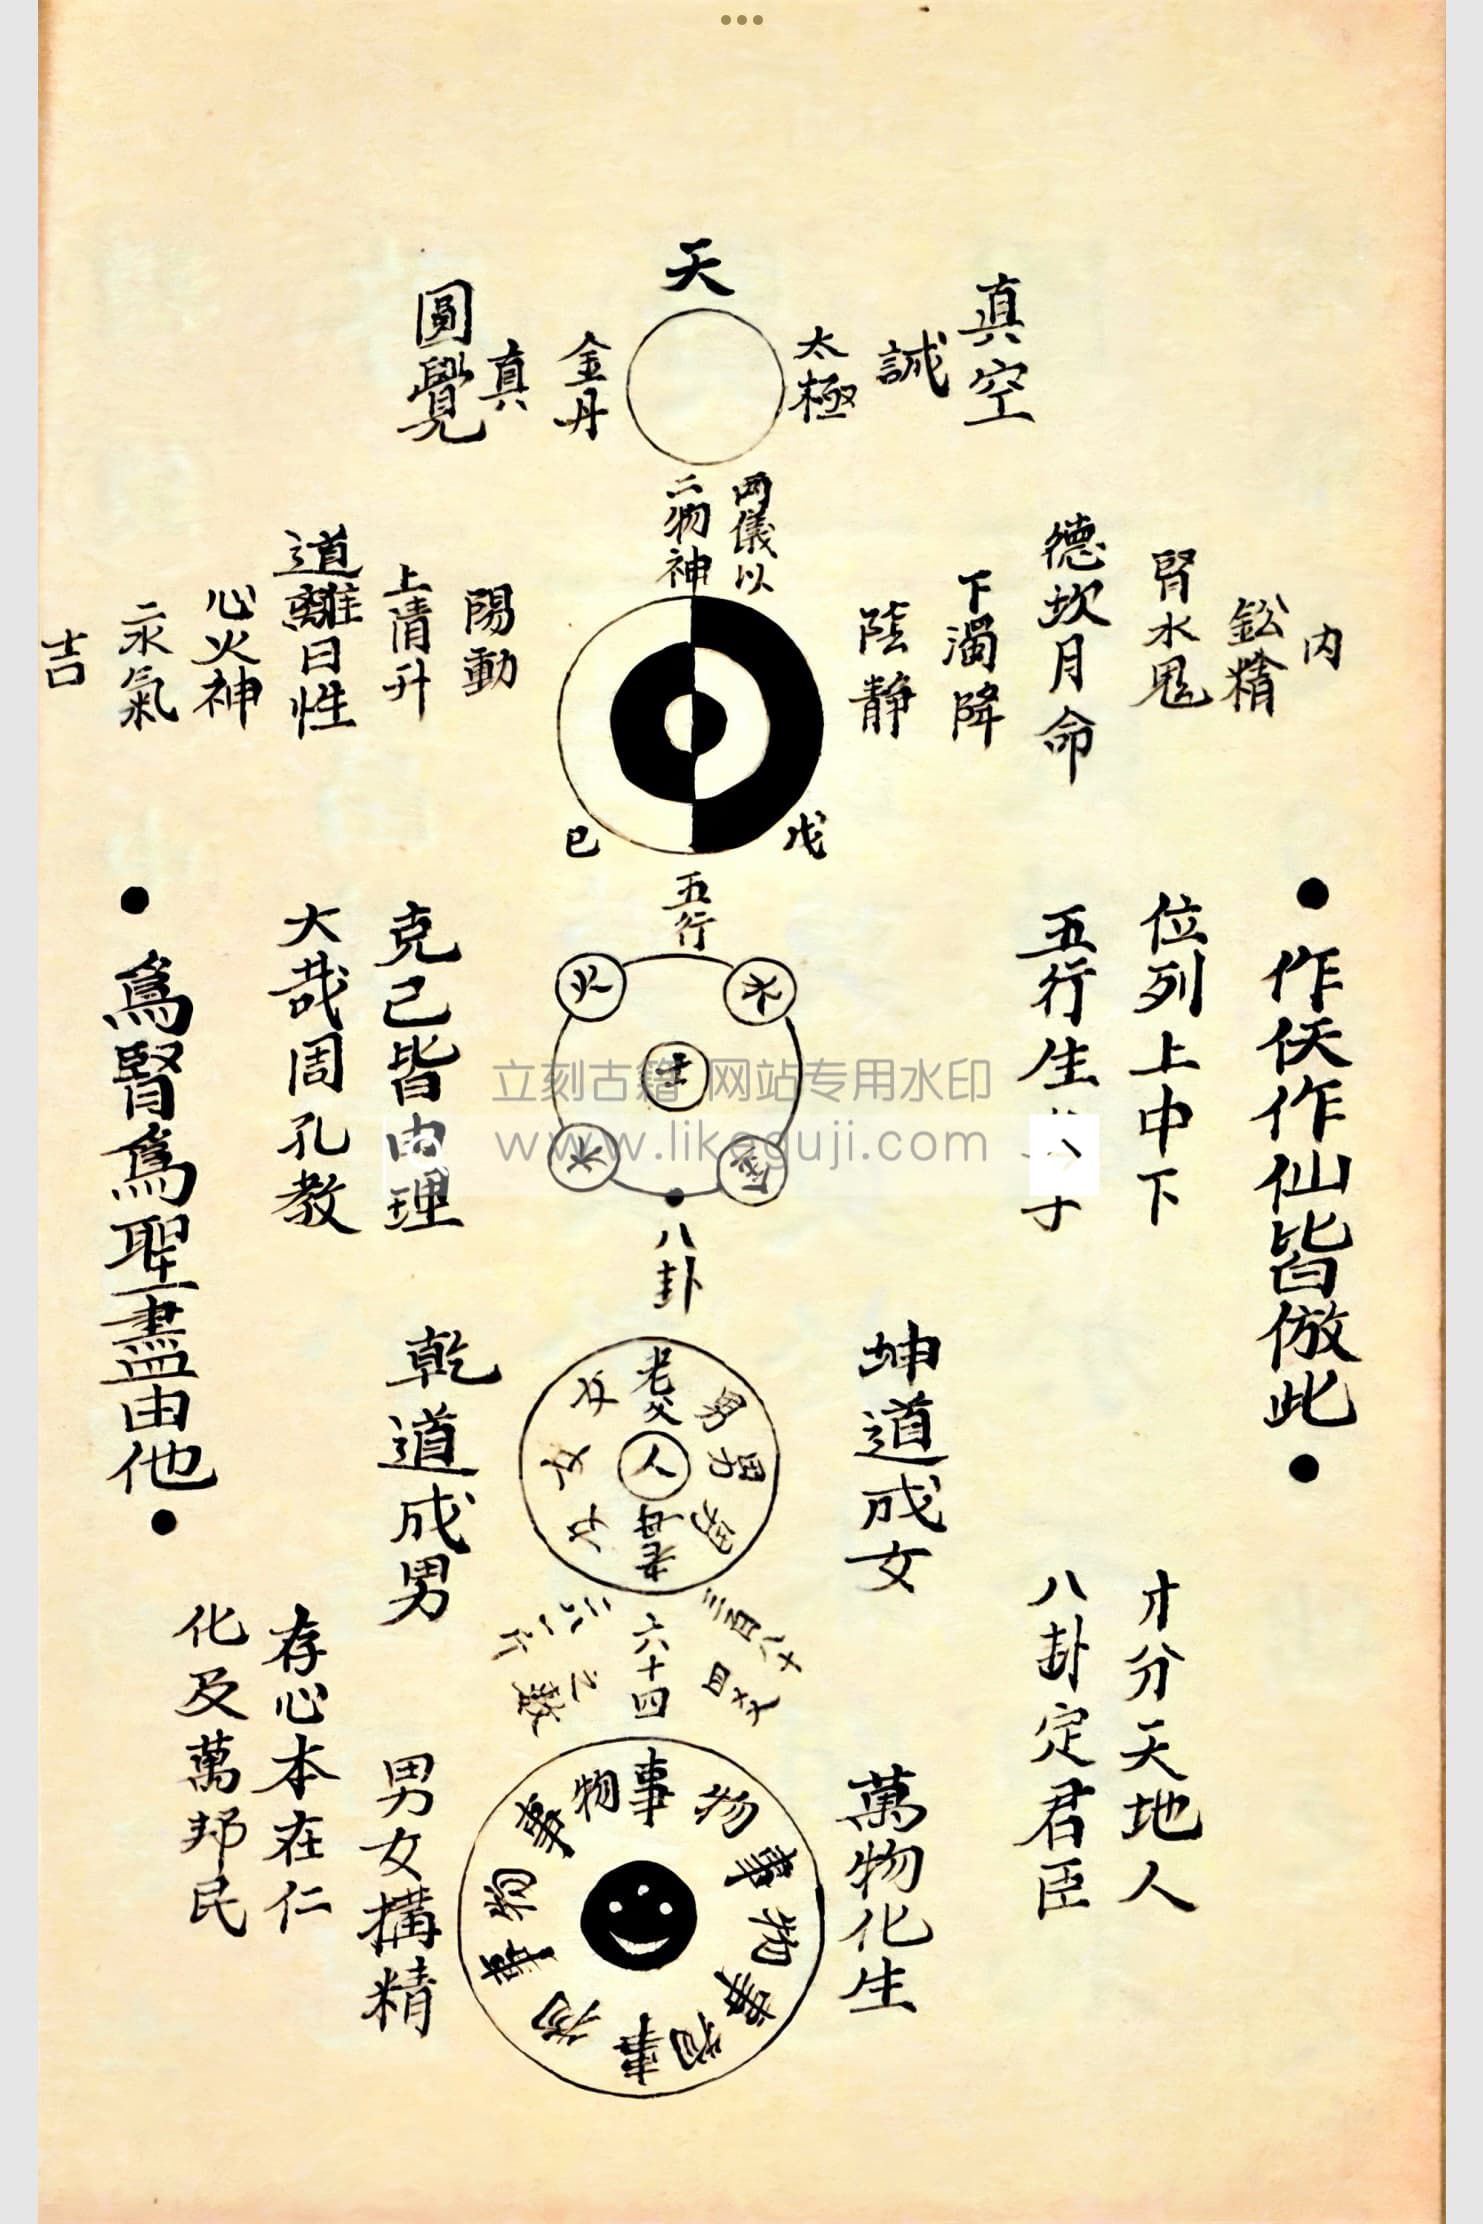 天
真空
誠
太極
金丹
真
圓覺
兩儀以
二物神
內
鈆精
腎水鬼
德坎月命
下濁降
陰静
陽動
上清升
道離日性
心火神
永氣
吉
戊
已
五行
水
火
土
金
木
作佛作仙皆倣此
位列上中下
五行生父子
克己皆由理
大哉周孔教
為賢為聖盡由他
八卦
坤道成女
老父
男
男
男
人
女
女
女
老母
乾道成男
才分天地人
八卦定君臣
三百八十
四爻
六十四
之數
萬物化生
事物
物
事
物
事
物
事
物
事
物
事
男女搆精
存心本在仁
化及萬邦民
立刻古籍 网站专用水印
www.likeguji.com